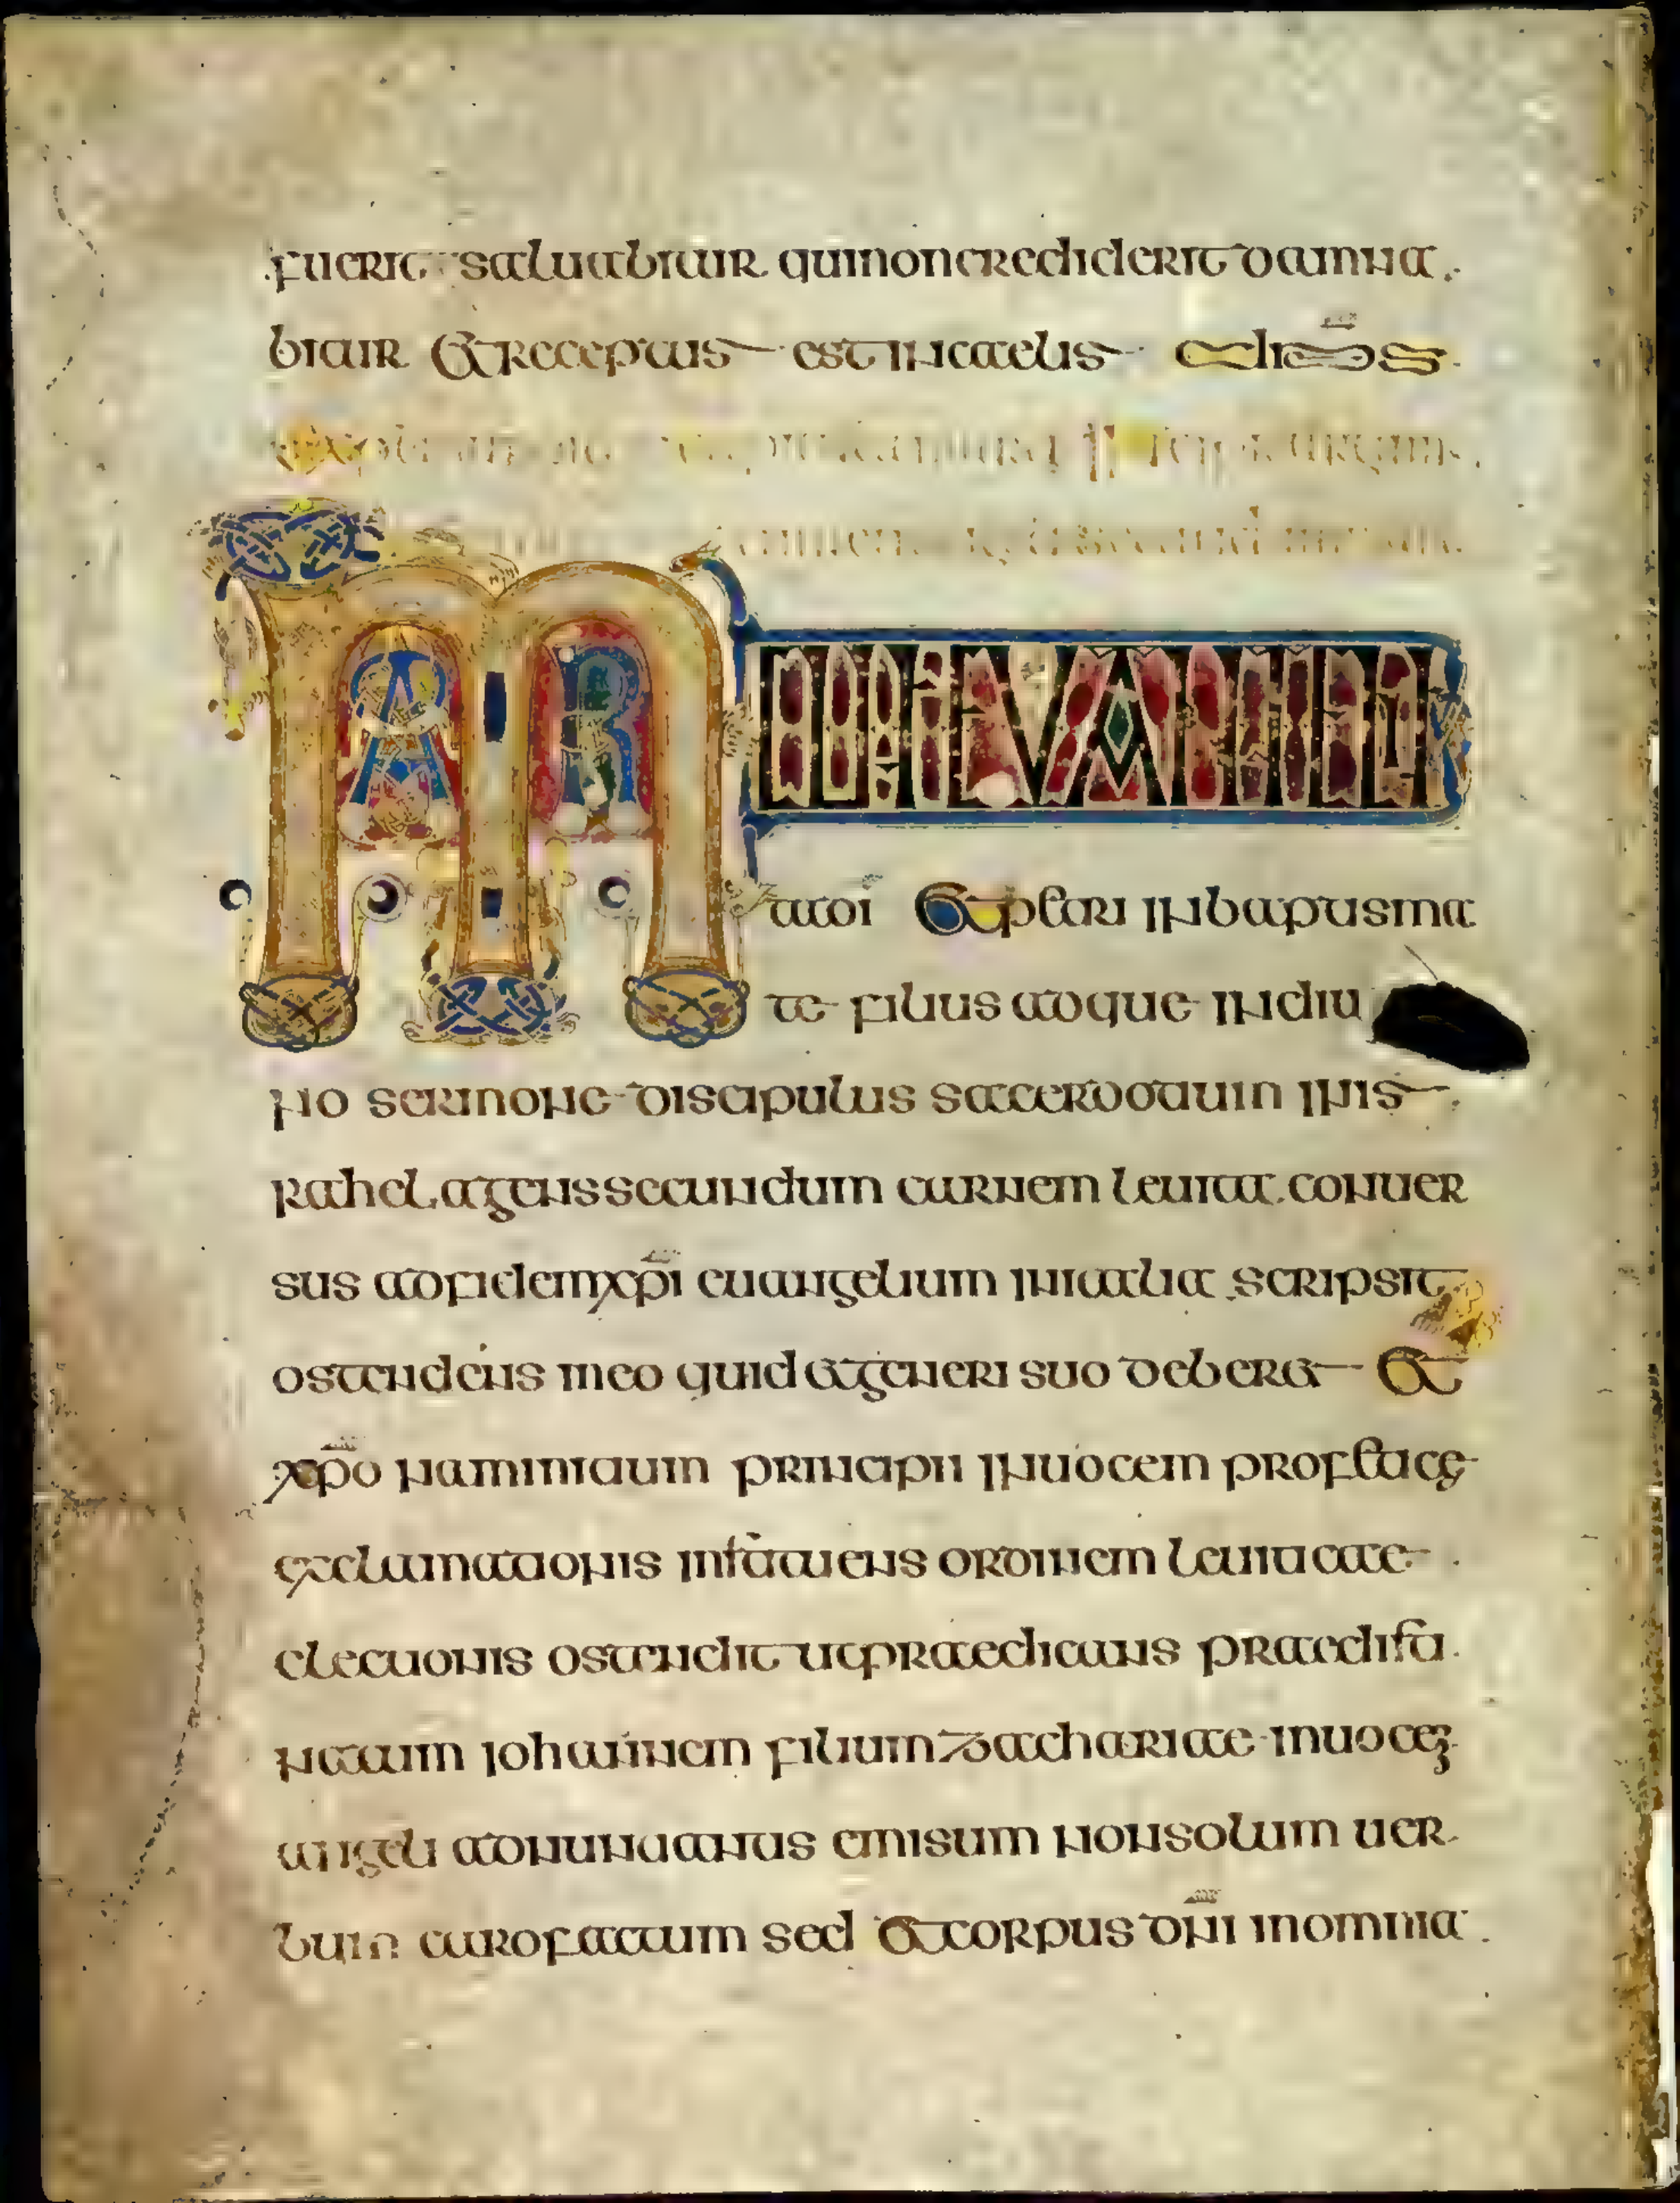 fuerit saluabitur qui non crediderit damna
bitur Et receptus est in caelis
MAR
ta dī Et petri in baptisma
te filius adque in diui
no sermone discipulus sacerdotium in is
rahel agens secundum carnem leuita conuer
sus ad fidem xp̄i euangelium in italia scripsit
ostendens in eo quid et generi suo deberet Et
xp̄o nam initium principii in uocem profetice
ęxclamationis instituens ordinem leuiticae
electionis ostendit ut praedicans praedisti
natum iohannem filium zachariae in uocem
angeli adnuntiantis emisum non solum uer
bum caro factum sed et corpus dn̄i in omnia